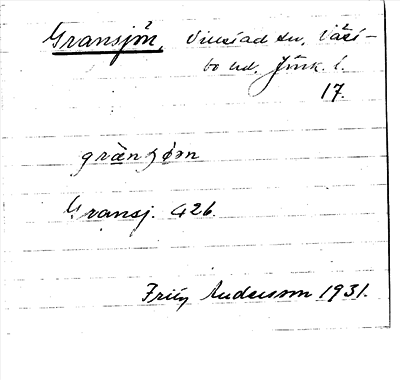 Gransjön, Vireda sn,
bo hd. Jönk. l.
17.
grànʒøn
Gransj. 426.
Fritz Andersson 1931.